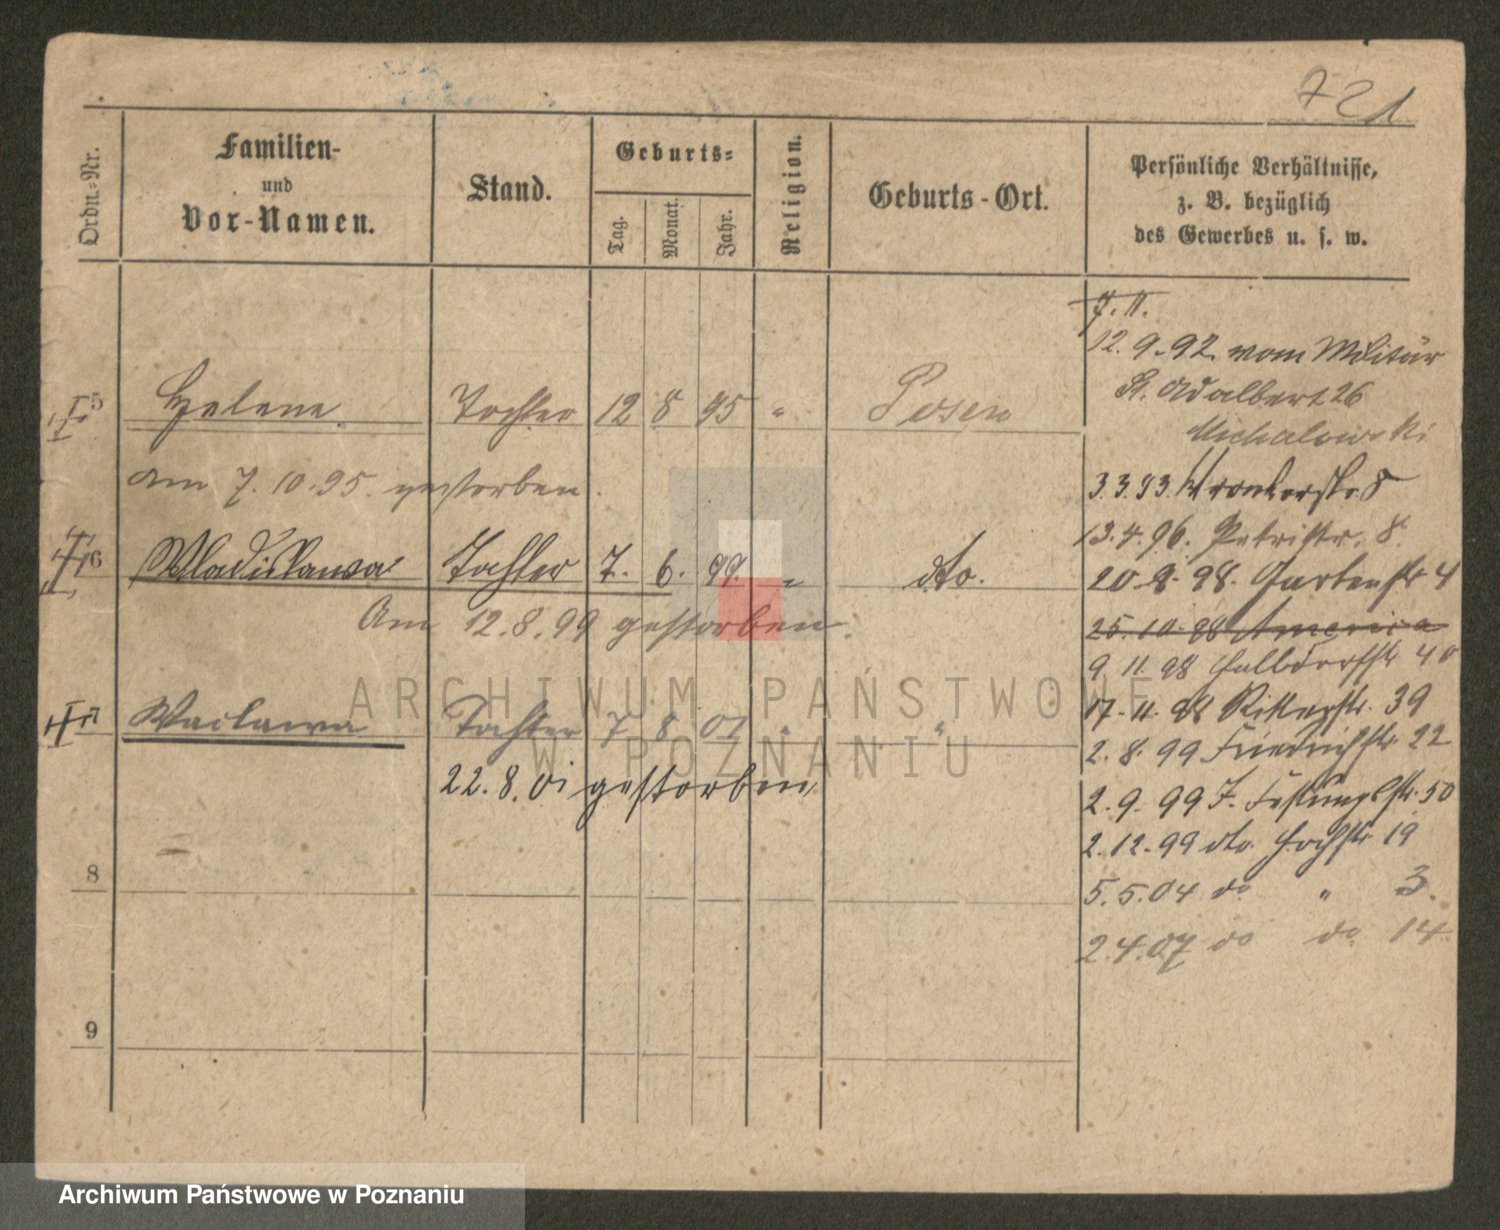 721
Ordn.-Nr.
Familien-
und
Vor-Namen.
Stand.
Geburts-
Tag.
Monat.
Jahr.
Religion.
Geburts-Ort.
Persönliche Verhältnisse,
z. B. bezüglich
des Gewerbes u. s. w.
7. 11.
12. 9. 92 vom Militär
St. Adalbert 26
Michalowski
5 Helene Tochter 12 8 95 " Posen
am 7. 10. 95. gestorben.
3. 3. 93. Wronkerstr. 8
13. 4. 96. Petristr. 8.
6 Wladislawa Tochter 7. 6. 99. " dto.
Am 12. 8. 99 gestorben.
20. 9. 98. Gartenstr. 4
25. 10. 98 America
9. 11. 98 Halbdorfstr. 40
17. 11. 98 Ritterstr. 39
7 Waclawa Tochter 7 8 01 " "
22. 8. 01 gestorben
2. 8. 99 Friedrichstr. 22
2. 9. 99 J. Festungsstr. 50
2. 12. 99 dto. Hochstr. 19
8
5. 5. 04 do " 3.
2. 4. 07 do do 14.
9
ARCHIWUM PAŃSTWOWE
W POZNANIU
Archiwum Państwowe w Poznaniu